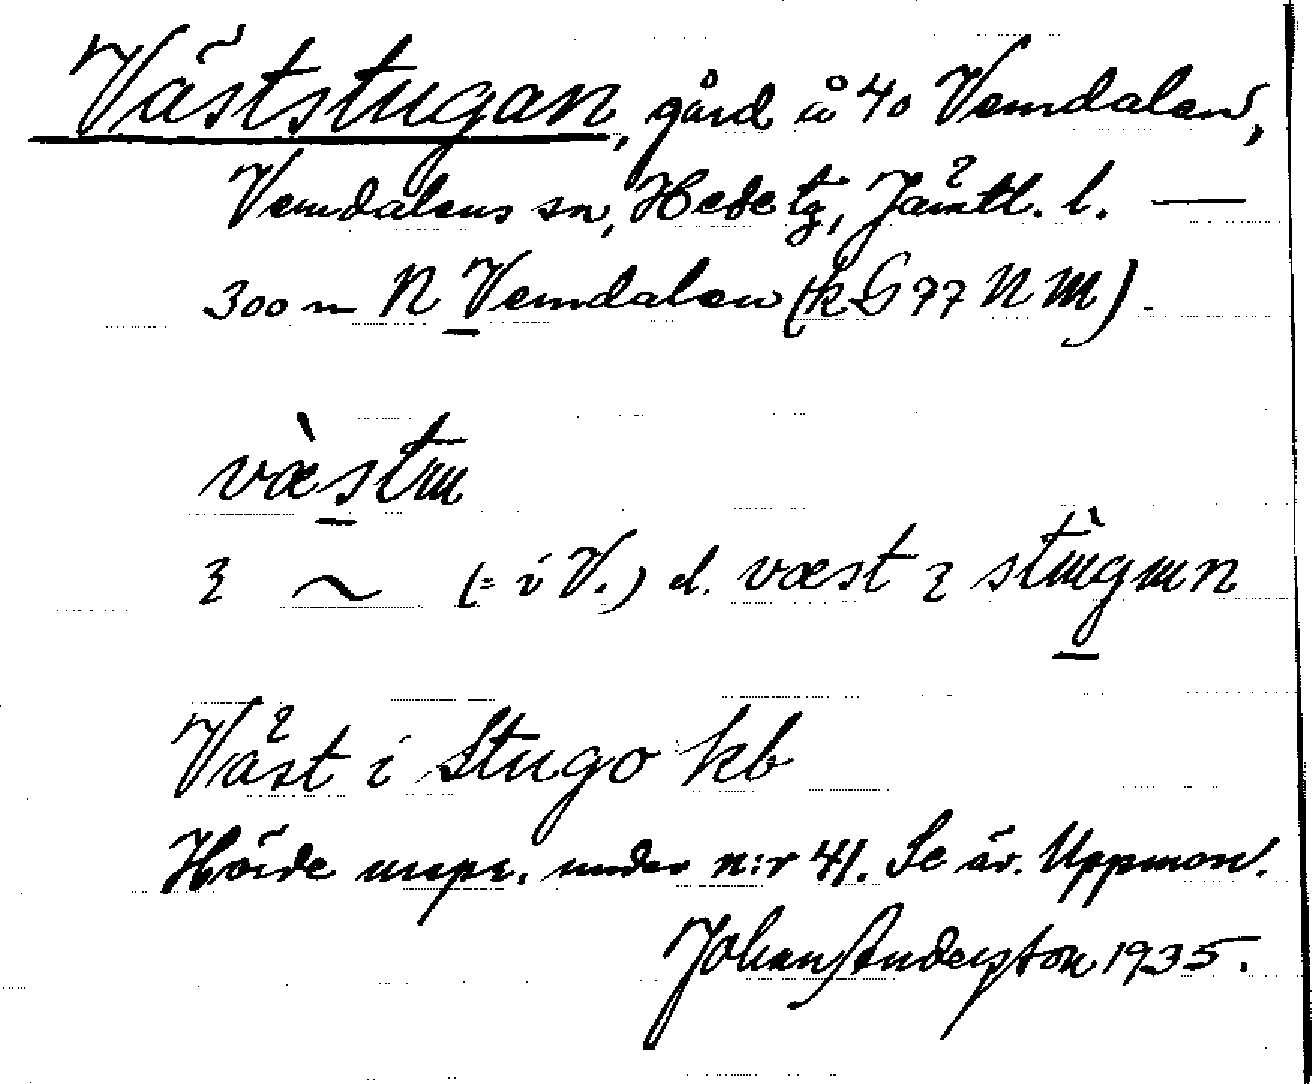 Väststugan, gård å 40 Vemdalen,
Vemdalens sn, Hede tg, Jämtl. l. —
300 m N Vemdalen (k G 77 N M).
væ̀stɯ
ʒ ~ (= i V.) el. væst ʒ stɯ̀gɯn
Väst i Stugo kb
Hörde urspr. under n:r 41. Se äv. Uppmon.
Johan Anderston 1935.